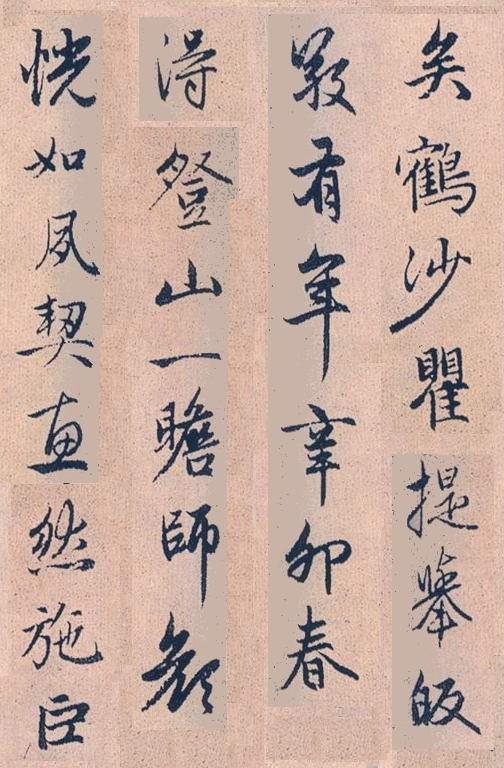 矣鶴沙瞿提舉皈
敬有年辛卯春
得登山一瞻師顏
恍如夙契惠然施巨